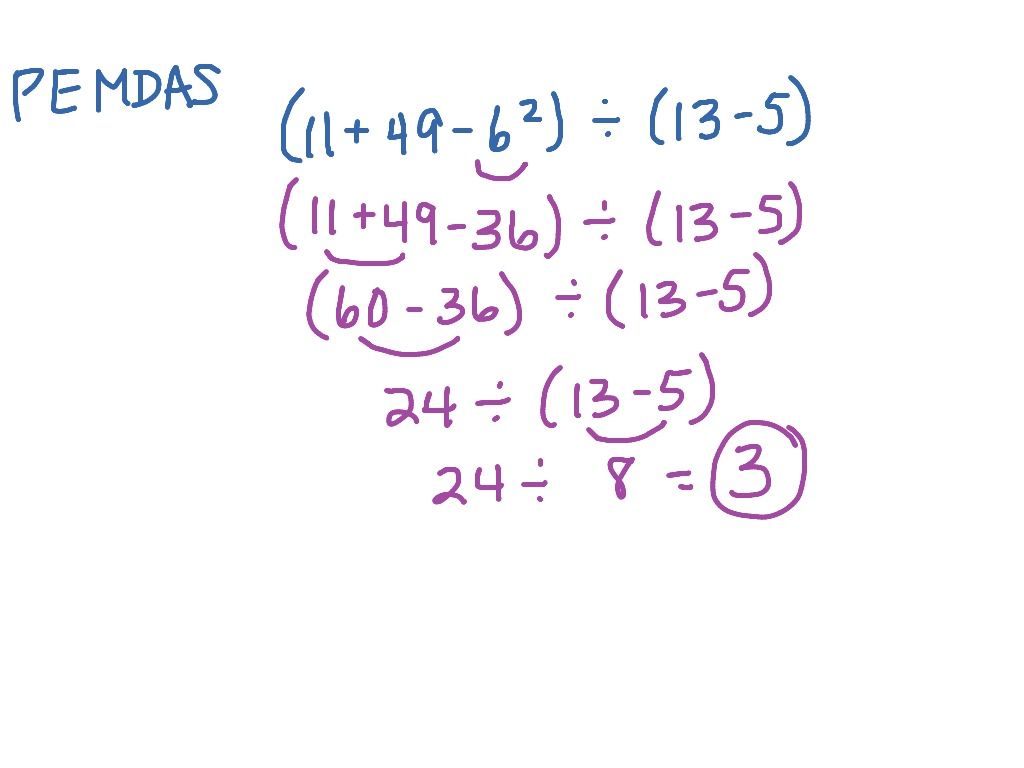 PEMDAS
(11 + 49 - 6²) ÷ (13 - 5)
(11 + 49 - 36) ÷ (13 - 5)
(60 - 36) ÷ (13 - 5)
24 ÷ (13 - 5)
24 ÷ 8 = 3